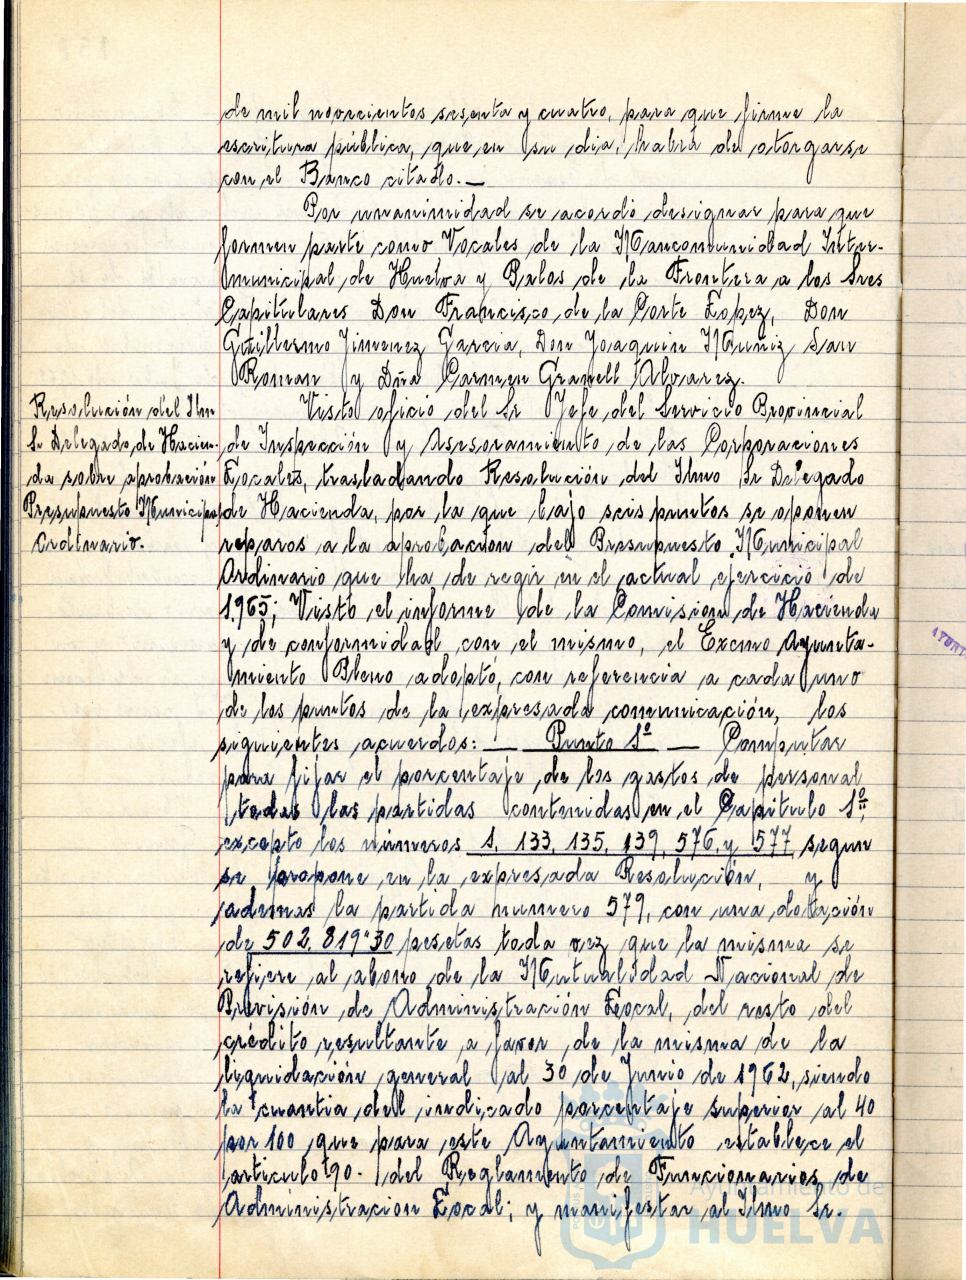 de mil novecientos sesenta y cuatro, para que firme la
escritura pública, que en su dia, habrá de otorgarse
con el Banco citado.—
Por unanimidad se acordó designar para que
formen parte como Vocales de la Mancomunidad Inter-
municipal de Huelva y Palos de la Frontera a los Sres
Capitulares Don Francisco de la Corte Lopez, Don
Guillermo Jimenez Garcia, Don Joaquin Muñiz San
Roman y Dña Carmen Granell Alvarez.
Resolución del Ilm
Sr Delegado de Hacien-
da sobre aprobación
Presupuesto Municipal
Ordinario.
Visto oficio del Sr Jefe del Servicio Provincial
de Inspección y Asesoramiento de las Corporaciones
Locales, trasladando Resolución del Ilmo Sr Delegado
de Hacienda, por la que bajo seis puntos se oponen
reparos a la aprobación del Presupuesto Municipal
Ordinario que ha de regir en el actual ejercicio de
1.965; Visto el informe de la Comision de Hacienda
y de conformidad con el mismo, el Excmo Ayunta-
miento Pleno adoptó, con referencia a cada uno
de los puntos de la expresada comunicación, los
siguientes acuerdos: — Punto 1º — Computar
para fijar el porcentaje de los gastos de personal
todas las partidas contenidas en el Capitulo 1º,
excepto los números 1, 133, 135, 139, 576, y 577, segun
se propone en la expresada Resolución, y
ademas la partida numero 579, con una dotación
de 502.819"30 pesetas toda vez que la misma se
refiere al abono de la Mutualidad Nacional de
Previsión de Administración Local, del resto del
crédito resultante a favor de la misma de la
liquidación general al 30 de Junio de 1962, siendo
la cuantia del indicado porcentaje superior al 40
por 100 que para este Ayuntamiento establece el
articulo 90. del Reglamento de Funcionarios de
Administracion Local; y manifestar al Ilmo Sr.
Ayuntamiento de
HUELVA